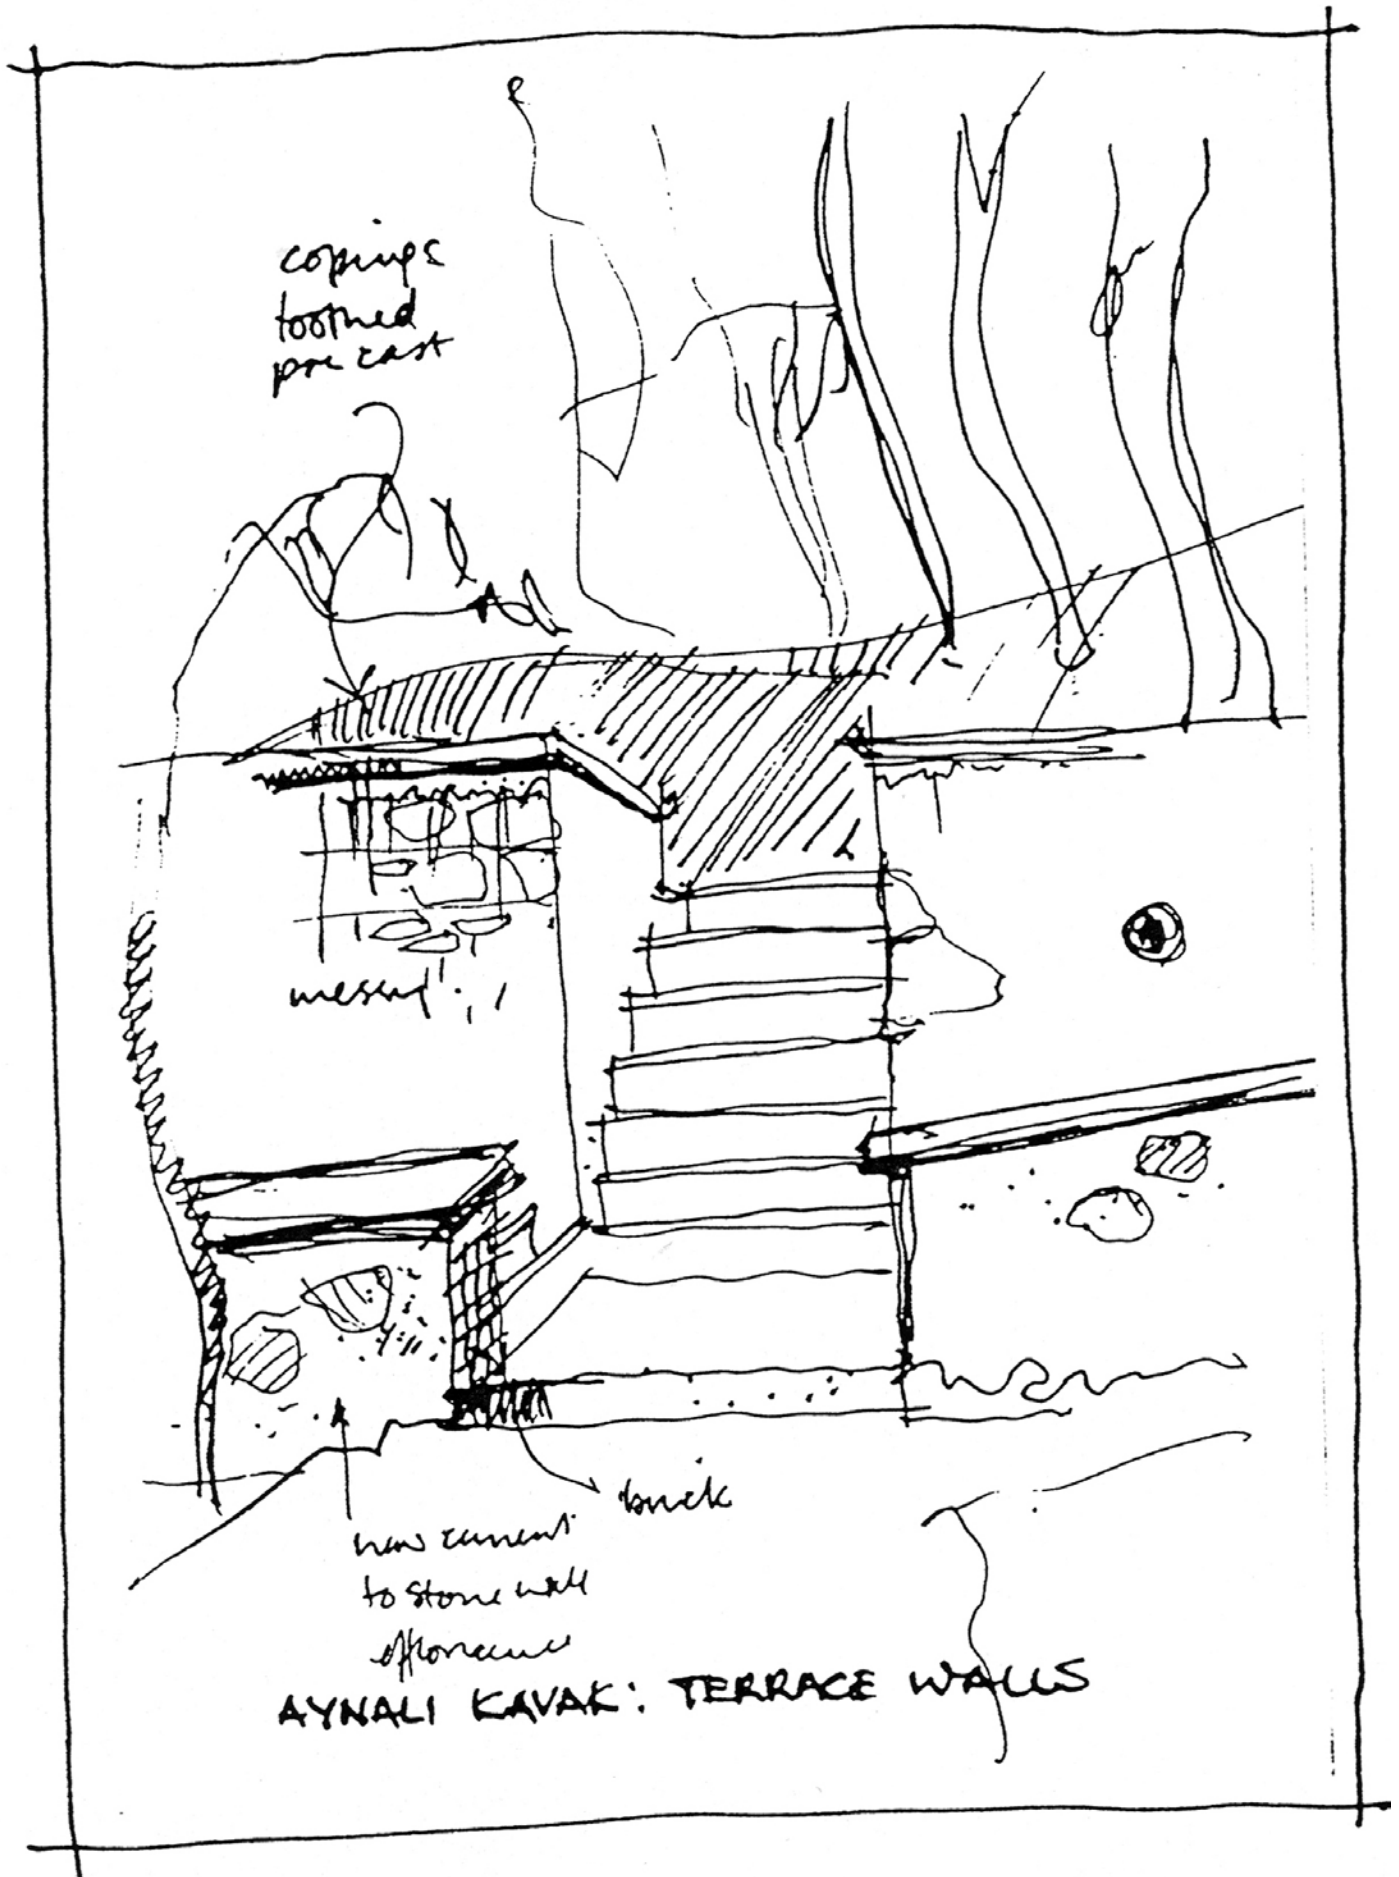 copings
toothed
pre cast
messy
brick
new cement
to stone wall
AYNALI KAVAK: TERRACE WALLS